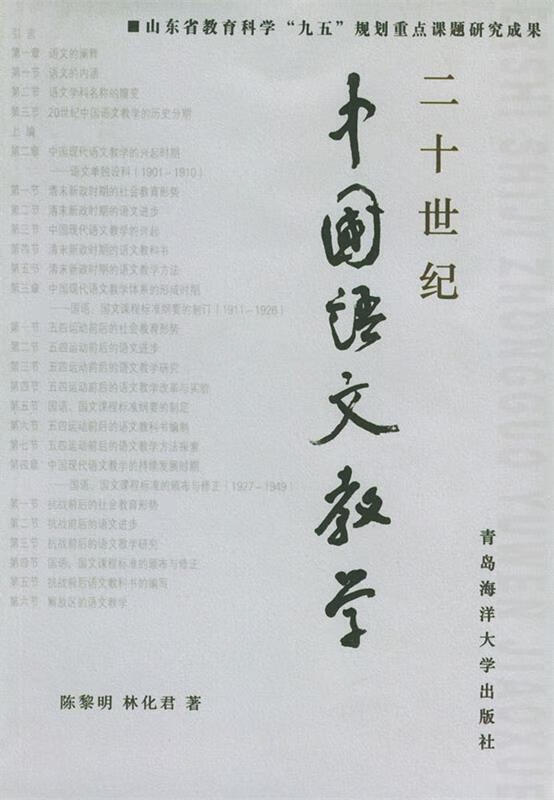 ■山东省教育科学“九五”规划重点课题研究成果
二十世纪
中國语文教学
引言
第一章 语文的阐释
第一节 语文的内涵
第二节 语文学科名称的嬗变
第三节 20世纪中国语文教学的历史分期
上编
第二章 中国现代语文教学的兴起时期
——语文单独设科(1901-1910)
第一节 清末新政时期的社会教育形势
第二节 清末新政时期的语文进步
第三节 中国现代语文教学的兴起
第四节 清末新政时期的语文教科书
第五节 清末新政时期的语文教学方法
第三章 中国现代语文教学体系的形成时期
——国语、国文课程标准纲要的制订(1911-1926)
第一节 五四运动前后的社会教育形势
第二节 五四运动前后的语文进步
第三节 五四运动前后的语文教学研究
第四节 五四运动前后的语文教学改革与实验
第五节 国语、国文课程标准纲要的制定
第六节 五四运动前后的语文教科书编制
第七节 五四运动前后的语文教学方法探索
第四章 中国现代语文教学的持续发展时期
——国语、国文课程标准的颁布与修正(1927-1949)
第一节 抗战前后的社会教育形势
第二节 抗战前后的语文进步
第三节 抗战前后的语文教学研究
第四节 国语、国文课程标准的颁布与修正
第五节 抗战前后语文教科书的编写
第六节 解放区的语文教学
陈黎明 林化君 著
青岛海洋大学出版社